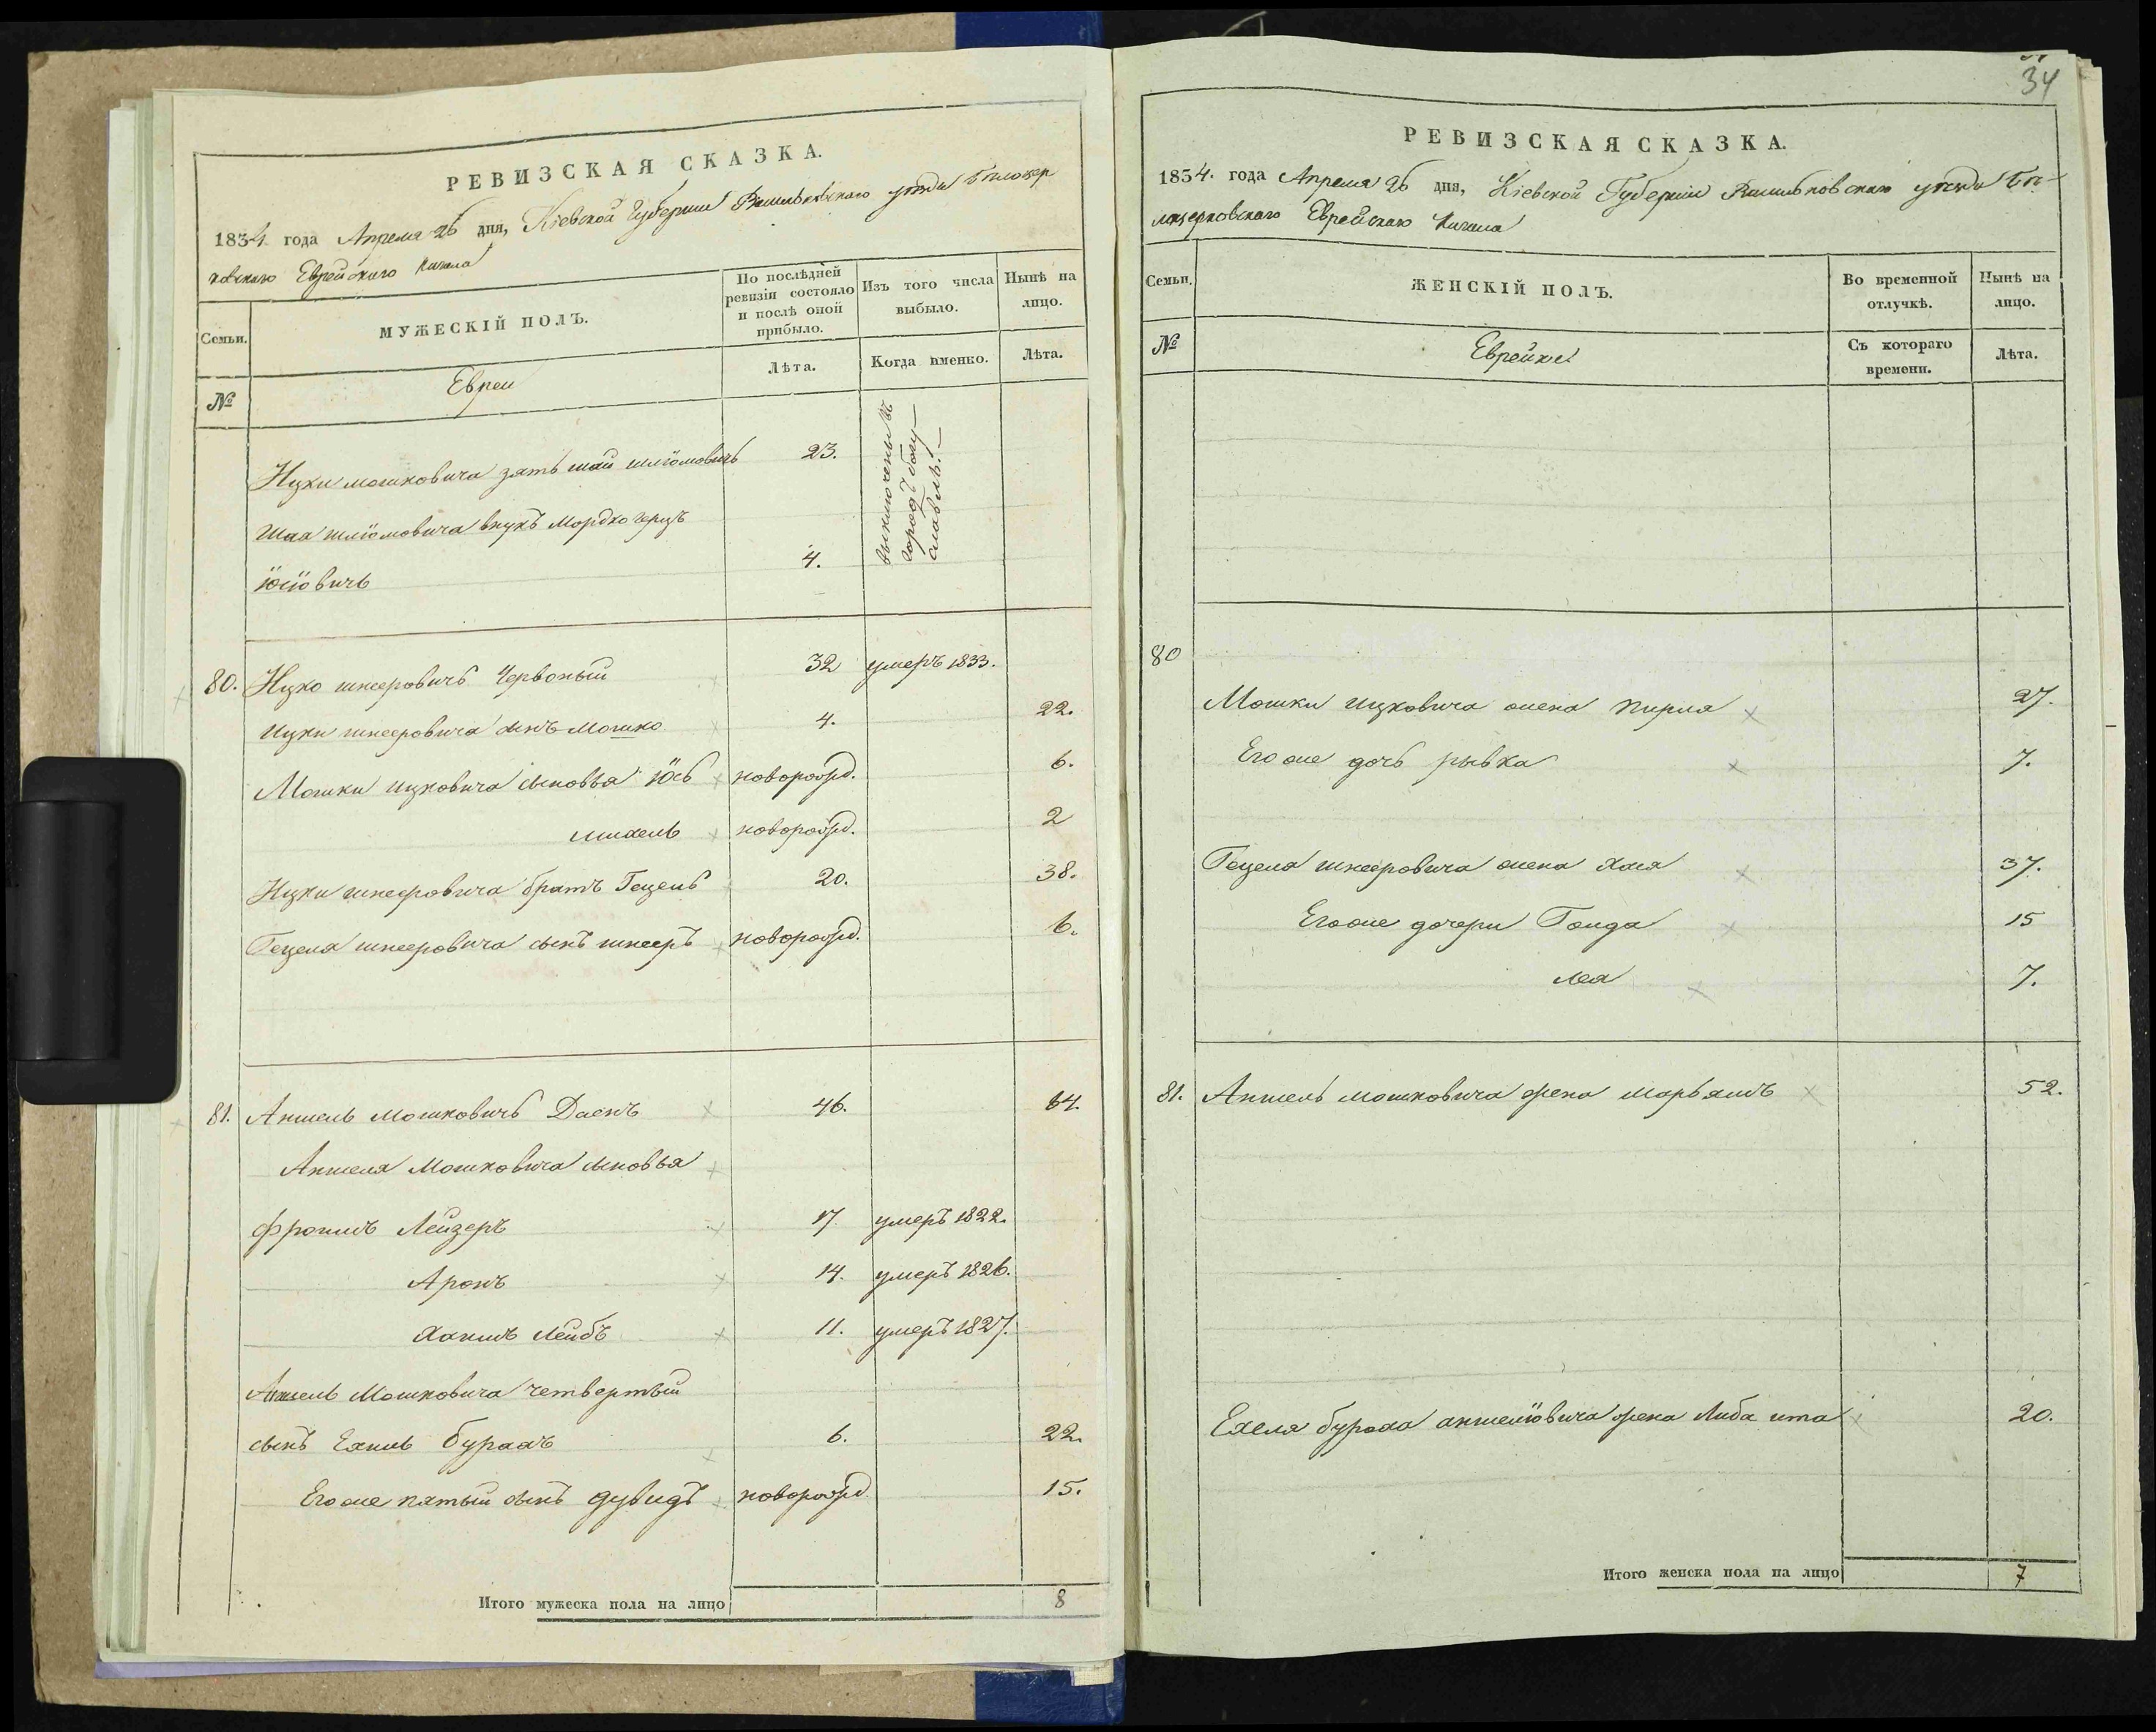 РЕВИЗСКАЯ СКАЗКА.
1834. года Апреля 26 дня, Кіевской Губерніи Васильковскаго уѣзда Бѣлоцер
ковскаго Еврейскаго Кагала
Семьи.
МУЖЕСКІЙ ПОЛЪ.
По послѣдней ревизіи состояло и послѣ оной прибыло.
Изъ того числа выбыло.
Нынѣ на лицо.
№
Евреи
Лѣта.
Когда именно.
Лѣта.
Ицки мошковича зять шая шліомовичъ 23.
выключены въ
городъ богу—
славль.—
Шая шліомовича внукъ Мордко герцъ
іосіовичъ 4.
80. Ицко шнееровичъ Червоный 32 умеръ 1833.
ицки шнееровича сынъ Мошко 4. 22.
Мошки ицковича сыновья іось новорожд. 6.
михель новорожд. 2
Ицки шнееровича братъ Гецель 20. 38.
Гецеля шнееровича сынъ шнееръ новорожд. 6.
81. Аншель Мошковичъ Даенъ 46. 64.
Аншеля Мошковича сыновья
фроимъ Лейзеръ 17 умеръ 1822.
Аронъ 14. умеръ 1826.
Хаимъ Лейбъ 11. умеръ 1827.
Аншель Мошковича четвертый
сынъ Ехиль бурахъ 6. 22.
Его же пятый сынъ дувидъ новорожд. 15.
Итого мужеска пола на лицо 8
34
РЕВИЗСКАЯ СКАЗКА.
1834. года Апреля 26 дня, Кіевской Губерніи Васильковскаго уѣзда Бѣ-
лоцерковскаго Еврейскаго Кагала
Семьи.
ЖЕНСКІЙ ПОЛЪ.
Во временной отлучкѣ.
Нынѣ на лицо.
№
Еврейки
Съ котораго времени.
Лѣта.
80
Мошки ицковича жена пирля 27.
Его же дочь рывка 7.
Гецеля шнееровича жена хася 37.
Его же дочери Гонда 15
лея 7.
81. Аншель мошковича жена марьямъ 52.
Ехеля бураха аншеліовича жена Либа ита 20.
Итого женска пола на лицо 7